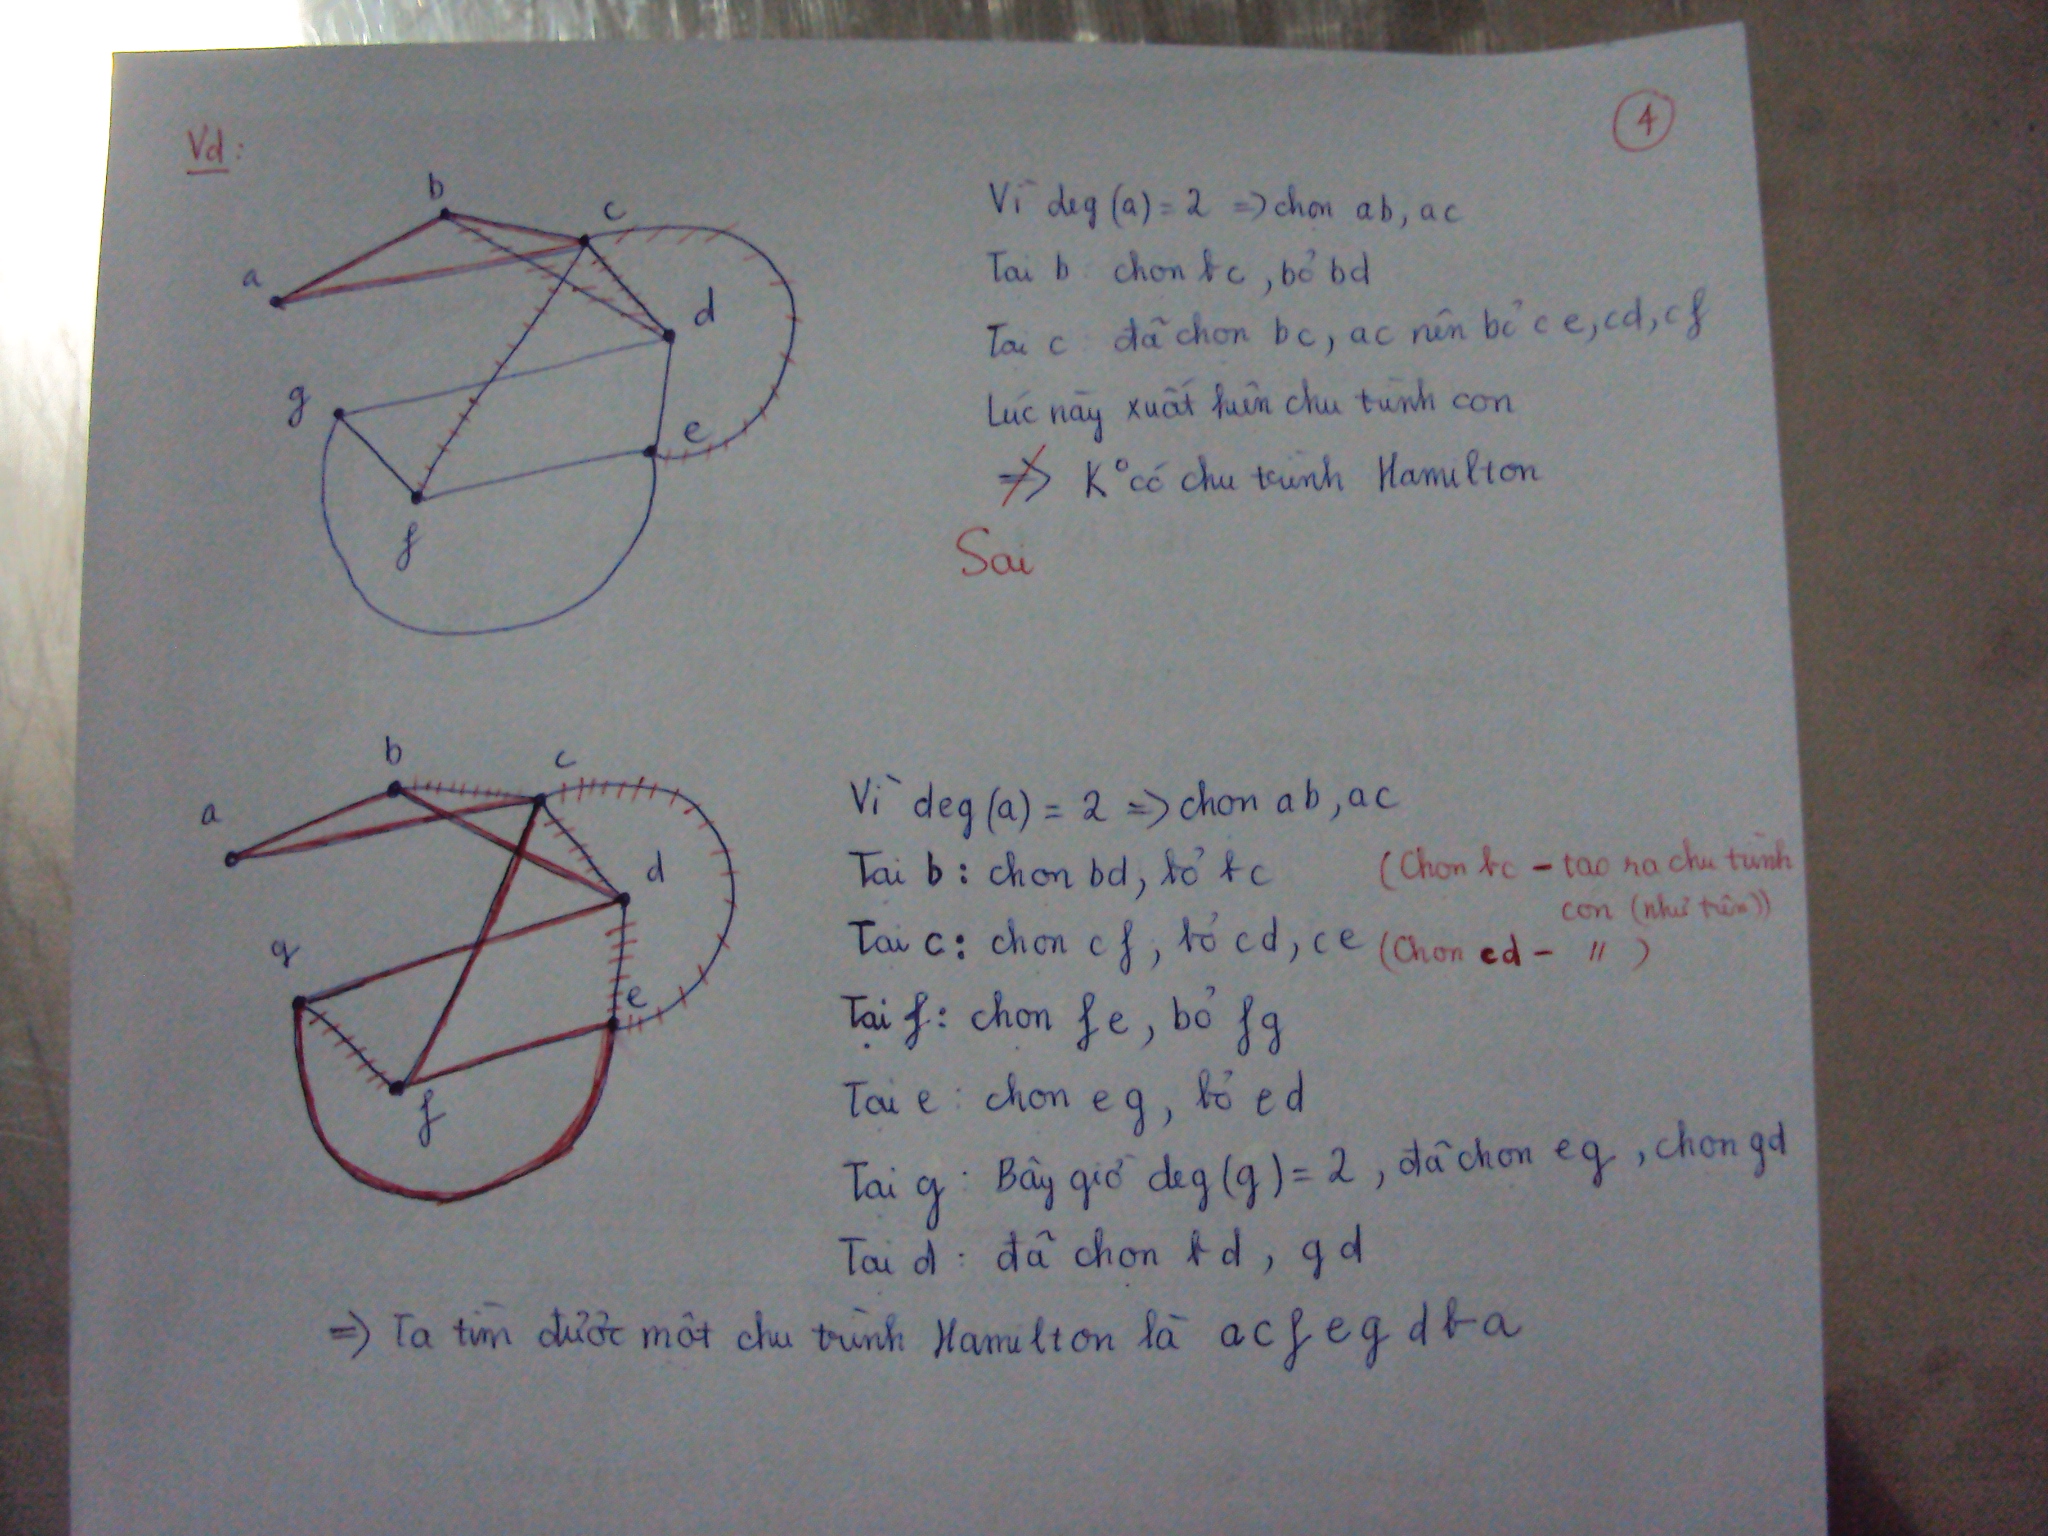 Vd:
4
b
c
a
d
g
e
f
Vì deg(a) = 2 => chọn ab, ac
Tại b: chọn bc, bỏ bd
Tại c: đã chọn bc, ac nên bỏ ce, cd, cf
Lúc này xuất hiện chu trình con
=> K° có chu trình Hamilton
Sai
b
c
a
d
g
e
f
Vì deg(a) = 2 => chọn ab, ac
Tại b: chọn bd, bỏ bc (Chọn bc - tạo ra chu trình
con (như trên))
Tại c: chọn cf, bỏ cd, ce (Chọn cd - " )
Tại f: chọn fe, bỏ fg
Tại e: chọn eg, bỏ ed
Tại g: Bây giờ deg(g) = 2, đã chọn eg, chọn gd
Tại d: đã chọn bd, gd
=> Ta tìm được một chu trình Hamilton là a c f e g d b a